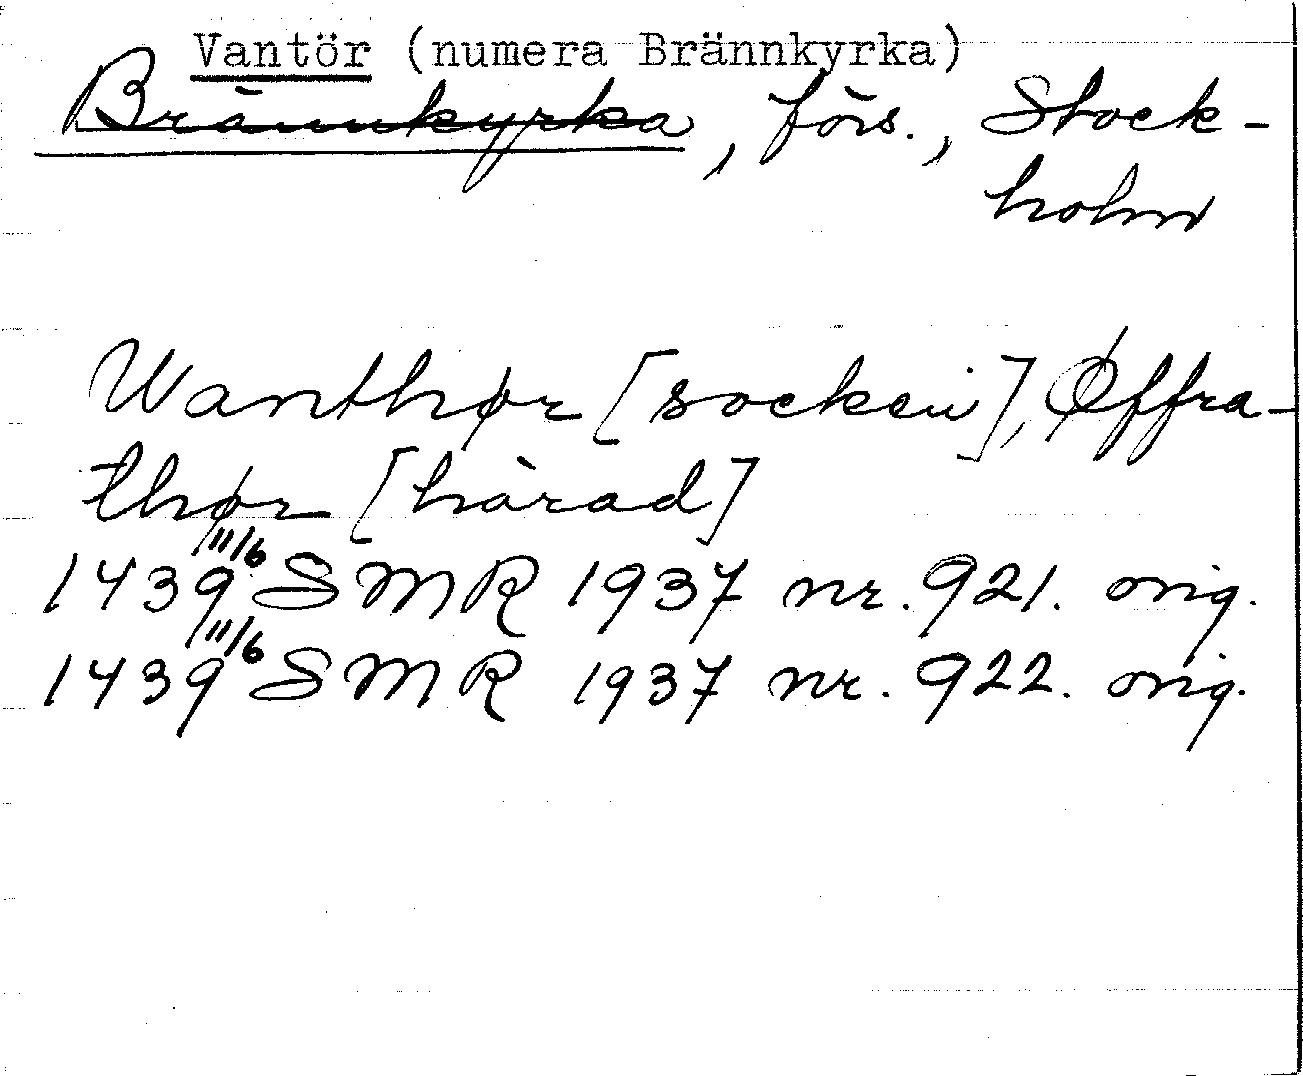 Vantör (numera Brännkyrka)
Brännkyrka, förs., Stock-
holm
Wanthør [socken], Øffra-
thør [härad]
1439 11/6 SMR 1937 nr. 921. orig.
1439 11/6 SMR 1937 nr. 922. orig.